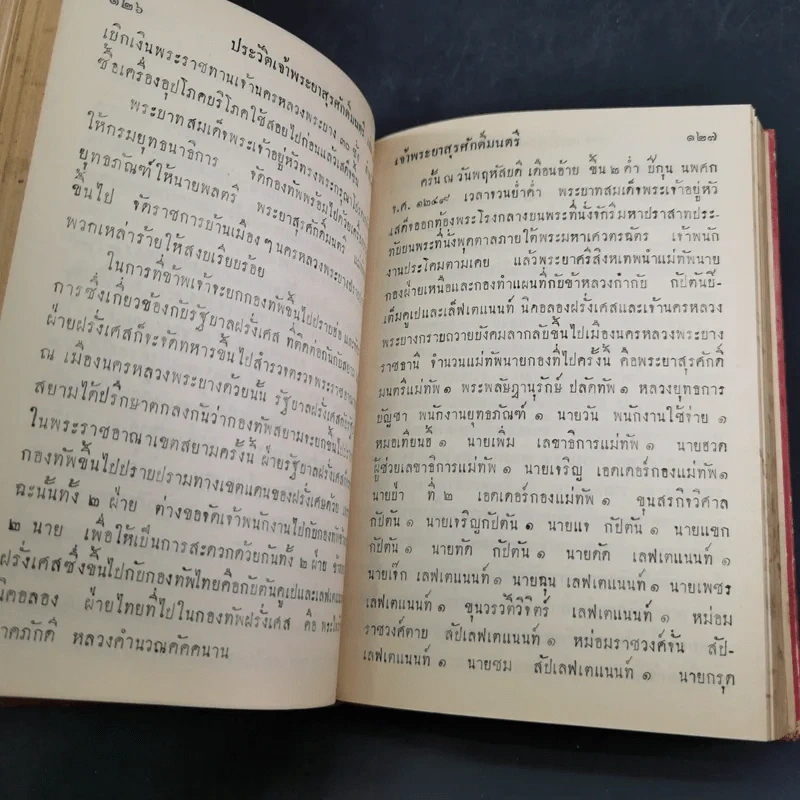 ๑๒๖
ประวัติเจ้าพระยาสุรศักดิ์มนตรี
เบิกเงินพระราชทานเจ้านครหลวงพระบาง ๓๐ ชั่ง
ซื้อเครื่องอุปโภคบริโภคใช้สอยไปก่อนแล้วเสด็จขึ้น
พระบาทสมเด็จพระเจ้าอยู่หัวทรงพระกรุณาโปรด
ให้กรมยุทธนาธิการ จัดกองทัพพร้อมไปด้วยเครื่อง
ยุทธภัณฑ์ให้นายพลตรี พระยาสุรศักดิ์มนตรี
ขึ้นไป จัดราชการบ้านเมือง ๆ นครหลวงพระบาง
พวกเหล่าร้ายให้สงบเรียบร้อย
ในการที่ข้าพเจ้าจะยกกองทัพขึ้นไปปราบฮ่อ
การซึ่งเกี่ยวข้องกับรัฐบาลฝรั่งเศส ที่ติดต่อกันกับสยาม
ฝ่ายฝรั่งเศสก็จะจัดทหารขึ้นไปสำรวจตรวจพระราชอาณา
ณ เมืองนครหลวงพระบางด้วยนั้น รัฐบาลฝรั่งเศสกับรัฐ
สยามได้ปรึกษาตกลงกันว่ากองทัพสยามจะยกขึ้นไป
ในพระราชอาณาเขตสยามครั้งนี้ ฝ่ายรัฐบาลฝรั่งเศส
กองทัพขึ้นไปปราบปรามทางเขตแดนของฝรั่งเศษด้วย
ฉะนั้นทั้ง ๒ ฝ่าย ต่างขอจัดเจ้าพนักงานไปกับกองทัพ
๒ นาย เพื่อให้เป็นการสะดวกด้วยกันทั้ง ๒ ฝ่าย
ฝรั่งเศสซึ่งขึ้นไปกับกองทัพไทยคือกัปตันคูเปและเลฟเตแนนท์
นิคอลอง ฝ่ายไทยที่ไปในกองทัพฝรั่งเศส คือ
ภาคภักดี หลวงคำนวณคัคคนาน
เจ้าพระยาสุรศักดิ์มนตรี ๑๒๗
ครั้น ณ วันพฤหัสบดี เดือนอ้าย ขึ้น ๒ ค่ำ ปีกุน นพศก
จ.ศ. ๑๒๔๙ เวลาจวนย่ำค่ำ พระบาทสมเด็จพระเจ้าอยู่หัว
เสด็จออกท้องพระโรงกลางบนพระที่นั่งจักรีมหาปราสาทประ-
ทับบนพระที่นั่งพุดตาลภายใต้พระมหาเศวตรฉัตร เจ้าพนัก
งานประโคมตามเคย แล้วพระยาศรีสิงหเทพนำแม่ทัพนาย
กองฝ่ายเหนือและกองทำแผนที่กับข้าหลวงกำกับ กัปตันบี-
เต็มคูเปและเล็ฟเตแนนท์ นิคอลองฝรั่งเศสและเจ้านครหลวง
พระบางกราบถวายบังคมลากลับขึ้นไปเมืองนครหลวงพระบาง
ราชธานี จำนวนแม่ทัพนายกองที่ไปครั้งนี้ คือพระยาสุรศักดิ์
มนตรีแม่ทัพ ๑ พระพลัษฎานุรักษ์ ปลัดทัพ ๑ หลวงยุทธการ
บัญชา พนักงานยุทธภัณฑ์ ๑ นายวัน พนักงานใช้จ่าย ๑
หมอเทียนฮี้ ๑ นายเพิ่ม เลขาธิการแม่ทัพ ๑ นายฮวด
ผู้ช่วยเลขาธิการแม่ทัพ ๑ นายเจริญ เอดเดอร์กองแม่ทัพ ๑
นายย่า ที่ ๒ เอดเดอร์กองแม่ทัพ ๑ ขุนสรกิจวิศาล
กัปตัน ๑ นายเจริญกัปตัน ๑ นายแจ กัปตัน ๑ นายแขก
กัปตัน ๑ นายทัด กัปตัน ๑ นายดัด เลฟเตแนนท์ ๑
นายเจ๊ก เลฟเตแนนท์ ๑ นายฉุน เลฟเตแนนท์ ๑ นายเพชร
เลฟเตแนนท์ ๑ ขุนวรวัติวิจิตร์ เลฟเตแนนท์ ๑ หม่อม
ราชวงศ์ตาบ สัปเลฟเตแนนท์ ๑ หม่อมราชวงศ์ขัน สัป-
เลฟเตแนนท์ ๑ นายชม สัปเลฟเตแนนท์ ๑ นายกรุด